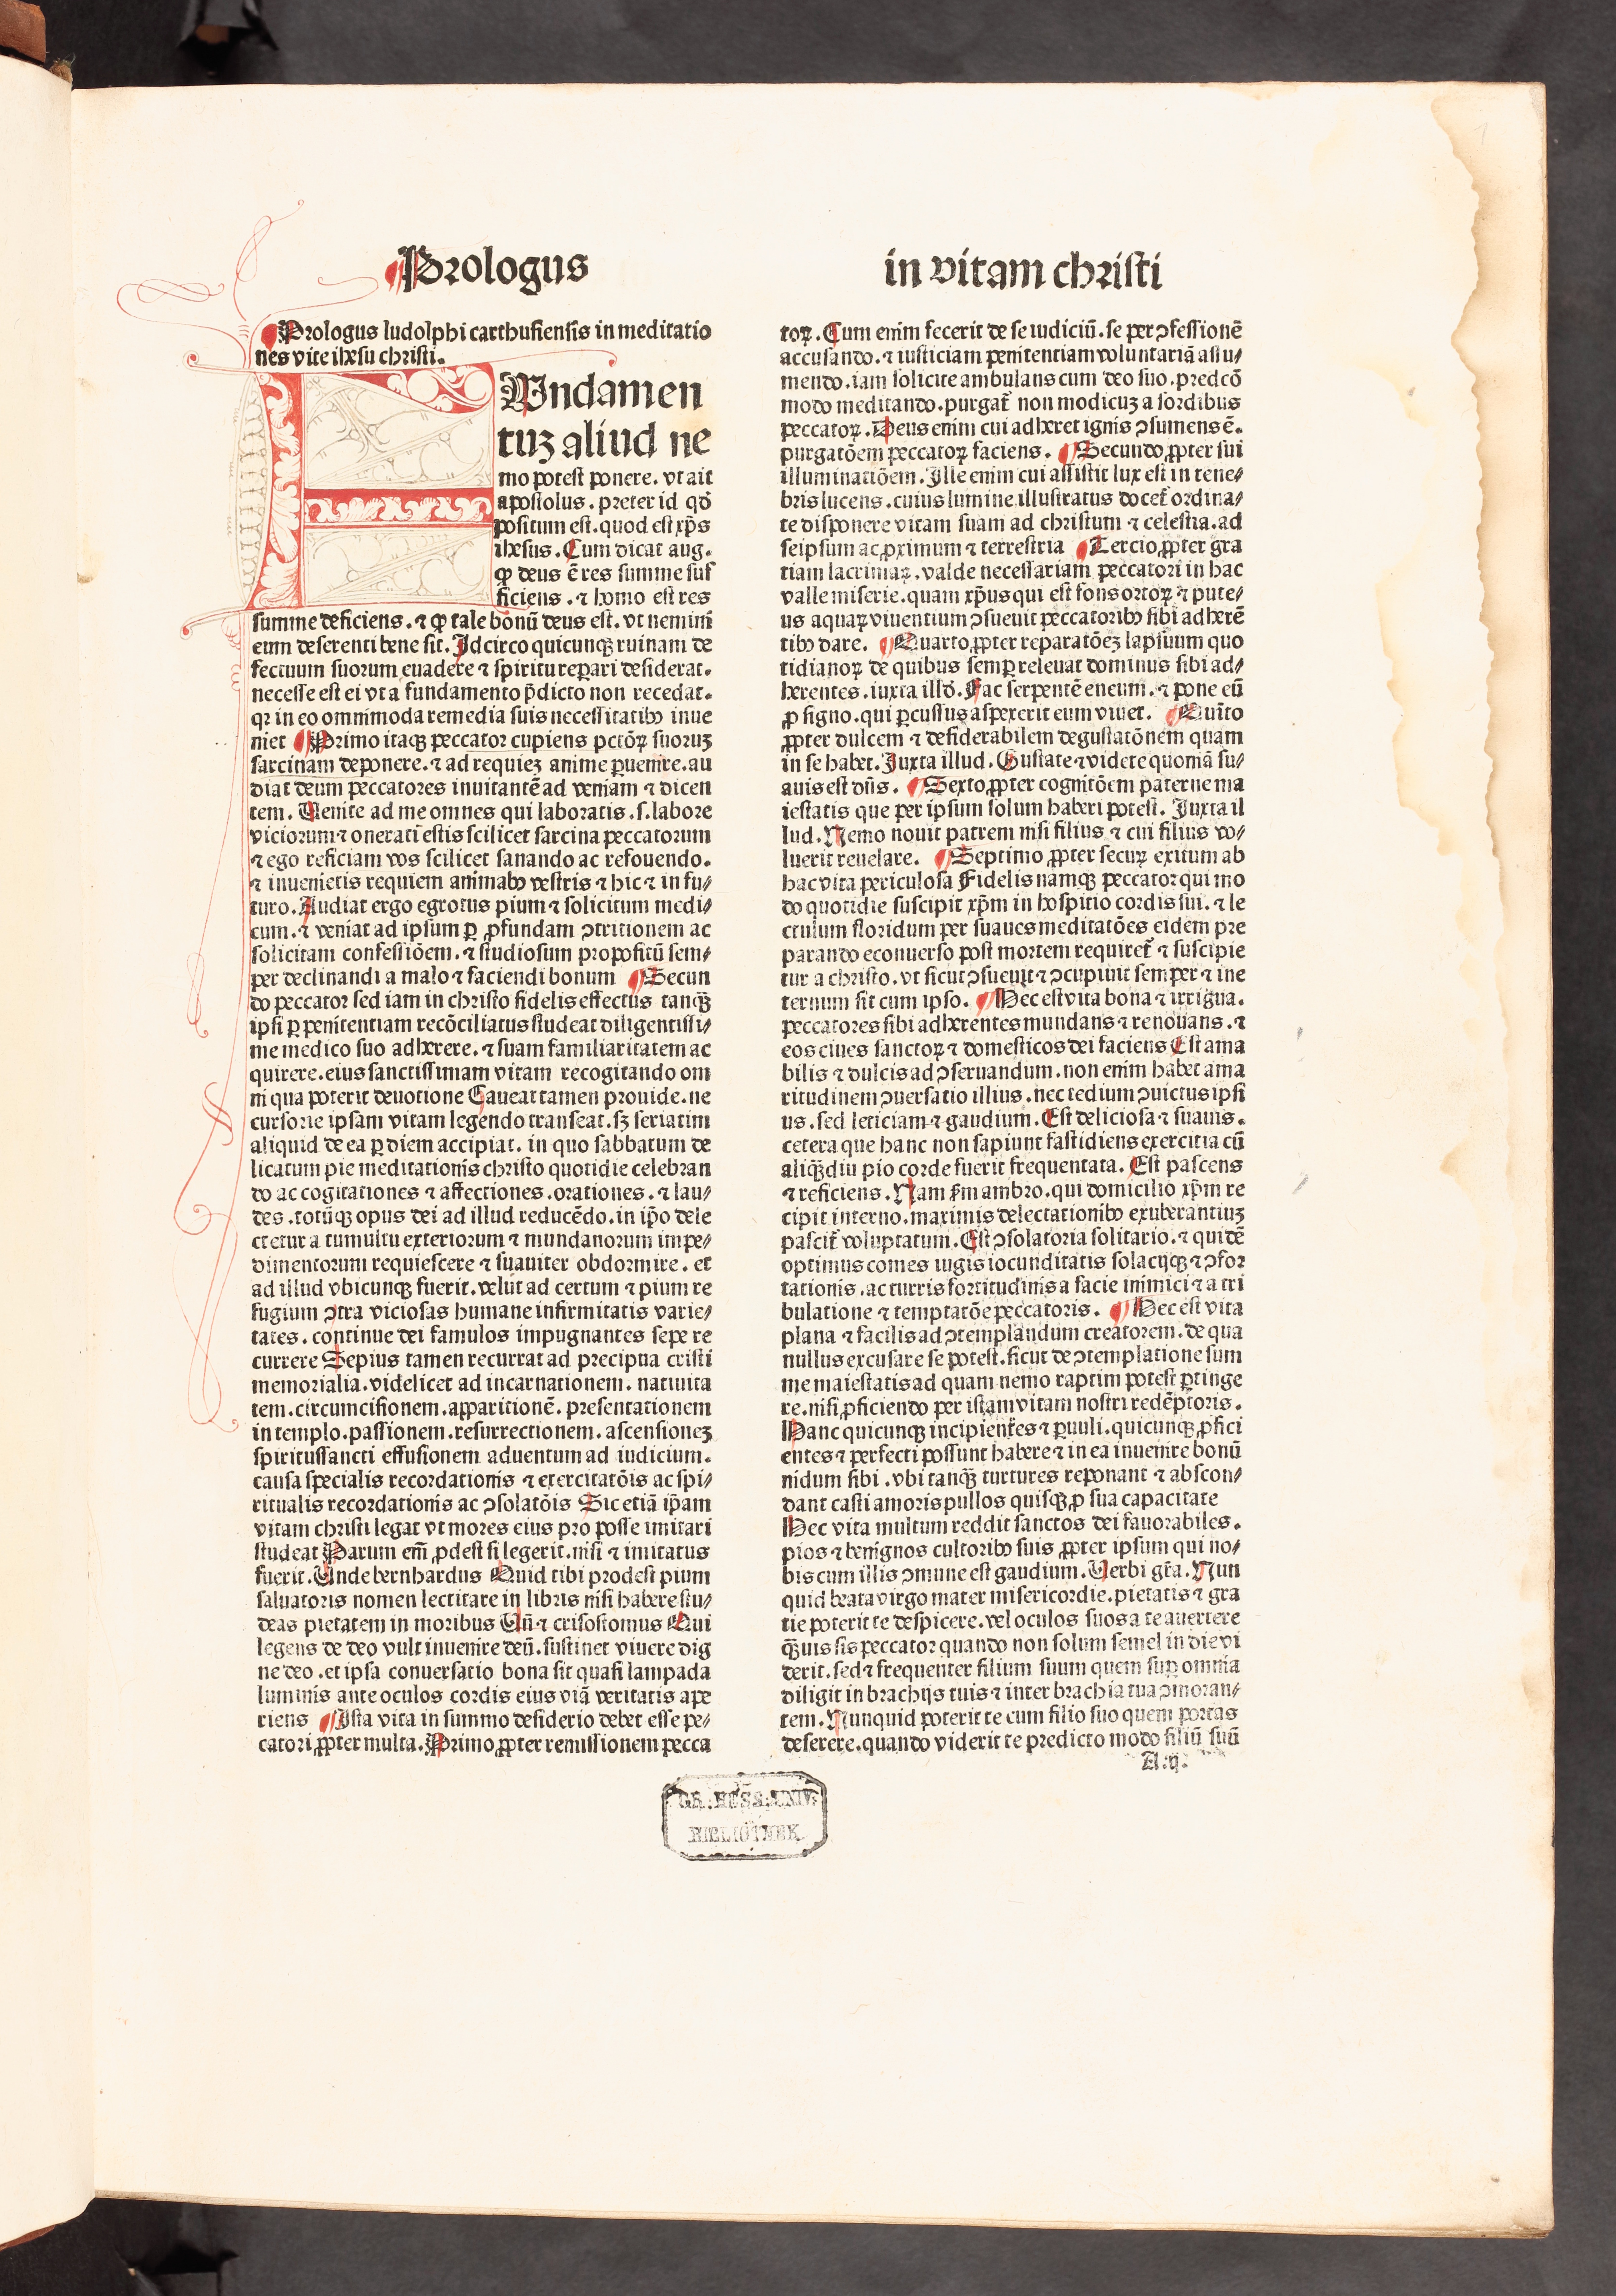 Prologus
in vitam christi
Prologus ludolphi carthusiensis in meditatio
nes vite ihesu christi.
FUndamen
tuꝫ aliud ne
mo potest ponere. vt ait
apostolus. preter id qď
positum est. quod est xp̄s
ihesus. Cum dicat aug.
ꝙ deus ē res summe suf
ficiens. ⁊ homo est res
summe deficiens. ⁊ ꝙ tale bonū deus est. vt nemini
eum deserenti bene sit. Idcirco quicunqꝫ ruinam de
fectuum suorum euadere ⁊ spiritu repari desiderat.
necesse est ei vt a fundamento p̄dicto non recedat.
qꝛ in eo omnimoda remedia suis necessitatibꝰ inue
niet Primo itaqꝫ peccator cupiens pctōꝝ suoruꝫ
sarcinam deponere. ⁊ ad requieꝫ anime ꝑuenire. au
diat deum peccatores inuitantē ad veniam ⁊ dicen
tem. Uenite ad me omnes qui laboratis. s. labore
viciorum ⁊ onerati estis scilicet sarcina peccatorum
⁊ ego reficiam vos scilicet sanando ac refouendo.
⁊ inuenietis requiem animabꝰ vestris ⁊ hic ⁊ in fu/
turo. Audiat ergo egrotus pium ⁊ solicitum medi/
cum. ⁊ veniat ad ipsum ꝑ ꝓfundam ↄtritionem ac
solicitam confessiōem. ⁊ studiosum propositū sem/
per declinandi a malo ⁊ faciendi bonum Secun
do peccator sed iam in christo fidelis effectus tanqꝫ̄
ipsi ꝑ penitentiam recōciliatus studeat diligentissi/
me medico suo adherere. ⁊ suam familiaritatem ac
quirere. eius sanctissimam vitam recogitando om
ni qua poterit deuotione Caueat tamen prouide. ne
cursorie ipsam vitam legendo transeat. sꝫ seriatim
aliquid de ea ꝑ diem accipiat. in quo sabbatum de
licatum pie meditationis christo quotidie celebran
do ac cogitationes ⁊ affectiones. orationes. ⁊ lau/
des. totūqꝫ opus dei ad illud reducēdo. in ip̄o dele
ctetur a tumultu exteriorum ⁊ mundanorum impe/
dimentorum requiescere ⁊ suauiter obdormire. et
ad illud vbicunqꝫ fuerit. velut ad certum ⁊ pium re
fugium ↄtra viciosas humane infirmitatis varie/
tates. continue dei famulos impugnantes sepe re
currere Sepius tamen recurrat ad precipua cristi
memorialia. videlicet ad incarnationem. natiuita
tem. circumcisionem. apparitionē. presentationem
in templo. passionem. resurrectionem. ascensioneꝫ
spiritussancti effusionem aduentum ad iudicium.
causa specialis recordationis ⁊ exercitatōis ac spi/
ritualis recordationis ac ↄsolatōis Sic etiā ip̄am
vitam christi legat vt mores eius pro posse imitari
studeat Parum em̄ ꝓdest si legerit. nisi ⁊ imitatus
fuerit. Unde bernhardus Quid tibi prodest pium
saluatoris nomen lectitare in libris nisi habere stu/
deas pietatem in moribus Un̄ ⁊ crisostomus Qui
legens de deo vult inuenire deū. sustinet viuere dig
ne deo. et ipsa conuersatio bona sit quasi lampada
luminis ante oculos cordis eius viā veritatis ape
riens Ista vita in summo desiderio debet esse pec/
catori ꝓpter multa. Primo ꝓpter remissionem pecca
toꝝ. Cum enim fecerit de se iudiciū. se per ↄfessionē
accusando. ⁊ iusticiam penitentiam voluntariā assu/
mendo. iam solicite ambulans cum deo suo. predcō
modo meditando. purgat̄ non modicuꝫ a sordibus
peccatoꝝ. Deus enim cui adheret ignis ↄsumens ē.
purgatōem peccatoꝝ faciens. Secundo ꝓpter sui
illuminatiōem. Ille enim cui assistit lux est in tene/
bris lucens. cuius lumine illustratus docet̄ ordina/
te disponere vitam suam ad christum ⁊ celestia. ad
seipsum ac ꝓximum ⁊ terrestria Tercio ꝓpter gra
tiam lacrimaꝝ. valde necessariam peccatori in hac
valle miserie. quam xp̄us qui est fons ortoꝝ ⁊ pute/
us aquaꝝ viuentium ↄsueuit peccatoribꝰ sibi adherē
tibꝰ dare. Quarto ꝓpter reparatōeꝫ lapsuum quo
tidianoꝝ de quibus semꝑ releuat dominus sibi ad/
herentes. iuxta illď. Fac serpentē eneum. ⁊ pone eū
ꝓ signo. qui ꝑcussus aspexerit eum viuet. Quīto
ꝓpter dulcem ⁊ desiderabilem degustatōnem quam
in se habet. Juxta illud. Gustate ⁊ videte quoniā su/
auis est dn̄s. Sexto ꝓpter cognitōem paterne ma
iestatis que per ipsum solum haberi potest. Juxta il
lud. Nemo nouit patrem nisi filius ⁊ cui filius vo/
luerit reuelare. Septimo ꝓpter secuꝝ exitum ab
hac vita periculosa Fidelis namqꝫ peccator qui mo
do quotidie suscipit xp̄m in hospitio cordis sui. ⁊ le
ctulum floridum per suaues meditatōes eidem pre
parando econuerso post mortem requiret̄ ⁊ suscipie
tur a christo. vt sicut ↄsueuit ⁊ ↄcupiuit semper ⁊ ine
ternum sit cum ipso. Hec est vita bona ⁊ irrigua.
peccatores sibi adherentes mundans ⁊ renouans. ⁊
eos ciues sanctoꝝ ⁊ domesticos dei faciens Est ama
bilis ⁊ dulcis ad ↄseruandum. non enim habet ama
ritudinem ↄuersatio illius. nec tedium ↄuictus ipsi
us. sed leticiam ⁊ gaudium. Est deliciosa ⁊ suauis.
cetera que hanc non sapiunt fastidiens exercitia cū
aliqꝫ̄diu pio corde fuerit frequentata. Est pascens
⁊ reficiens. Nam fm ambro. qui domicilio xp̄m re
cipit interno. maximis delectationibꝰ exuberantiuꝫ
pascit̄ voluptatum. Est ↄsolatoria solitario. ⁊ quidē
optimus comes iugis iocunditatis solacijqꝫ ⁊ ↄfor
tationis. ac turris fortitudinis a facie inimici ⁊ a tri
bulatione ⁊ temptatōe peccatoris. Hec est vita
plana ⁊ facilis ad ↄtemplandum creatorem. de qua
nullus excusare se potest. sicut de ↄtemplatione sum
me maiestatis ad quam nemo raptim potest ꝑtinge
re. nisi ꝓficiendo per istam vitam nostri redēptoris.
Hanc quicunqꝫ incipientes ⁊ ꝑuuli. quicunqꝫ ꝓfici
entes ⁊ perfecti possunt habere ⁊ in ea inuenire bonū
nidum sibi. vbi tanqꝫ̄ turtures reponant ⁊ abscon/
dant casti amoris pullos quisqꝫ ꝓ sua capacitate
Hec vita multum reddit sanctos dei fauorabiles.
pios ⁊ benignos cultoribꝰ suis ꝓpter ipsum qui no/
bis cum illis ↄmune est gaudium. Uerbi grā. Nun
quid beata virgo mater misericordie. pietatis ⁊ gra
tie poterit te despicere. vel oculos suos a te auertere
qꝫ̄uis sis peccator quando non solum semel in die vi
derit. sed ⁊ frequenter filium suum quem suꝑ omnia
diligit in brachijs tuis ⁊ inter brachia tua ↄmoran/
tem. Nunquid poterit te cum filio suo quem portas
deserere. quando viderit te predicto modo filiū suū
A.ij.
GR: HESS: UNIV:
BIBLIOTHEK